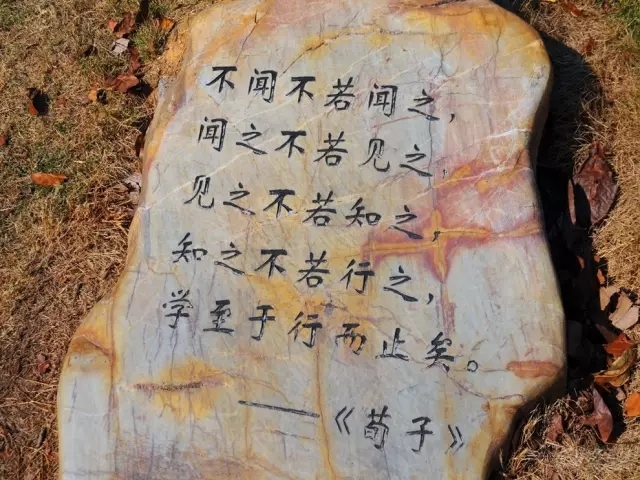 不闻不若闻之，
闻之不若见之，
见之不若知之，
知之不若行之，
学至于行而止矣。
——《荀子》